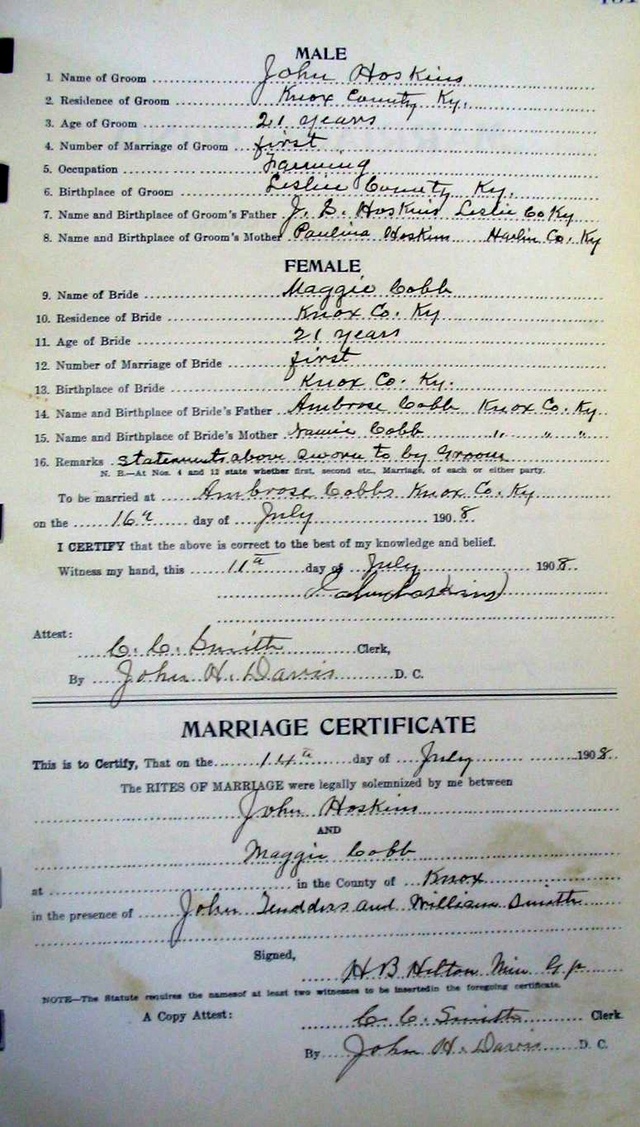 MALE
1. Name of Groom John Hoskins
2. Residence of Groom Knox County Ky.
3. Age of Groom 21 years
4. Number of Marriage of Groom first
5. Occupation Farming
6. Birthplace of Groom Leslie County Ky.
7. Name and Birthplace of Groom's Father J. L. Hoskins Leslie Co Ky
8. Name and Birthplace of Groom's Mother Paulina Hoskins Harlin Co. Ky
FEMALE
9. Name of Bride Maggie Cobb
10. Residence of Bride Knox Co. Ky
11. Age of Bride 21 years
12. Number of Marriage of Bride first
13. Birthplace of Bride Knox Co. Ky.
14. Name and Birthplace of Bride's Father Ambrose Cobb Knox Co. Ky.
15. Name and Birthplace of Bride's Mother Cobb " " "
16. Remarks statements above sworn to by Groom
N. B.—At Nos. 4 and 12 state whether first, second etc., Marriage, of each or either party.
To be married at Ambrose Cobbs Knox Co. Ky
on the 16th day of July 1908.
I CERTIFY that the above is correct to the best of my knowledge and belief.
Witness my hand, this 11th day of July 1908.
John Hoskins
Attest:
C. C. Smith Clerk,
By John H. Davis D. C.
MARRIAGE CERTIFICATE
This is to Certify, That on the 14th day of July 1908.
The RITES OF MARRIAGE were legally solemnized by me between
John Hoskins
AND
Maggie Cobb
at in the County of Knox
in the presence of John and William Smith
Signed,
H B Hilton Min
NOTE—The Statute requires the names of at least two witnesses to be inserted in the foregoing certificate.
A Copy Attest: C. C. Smith Clerk
By John H. Davis D. C.